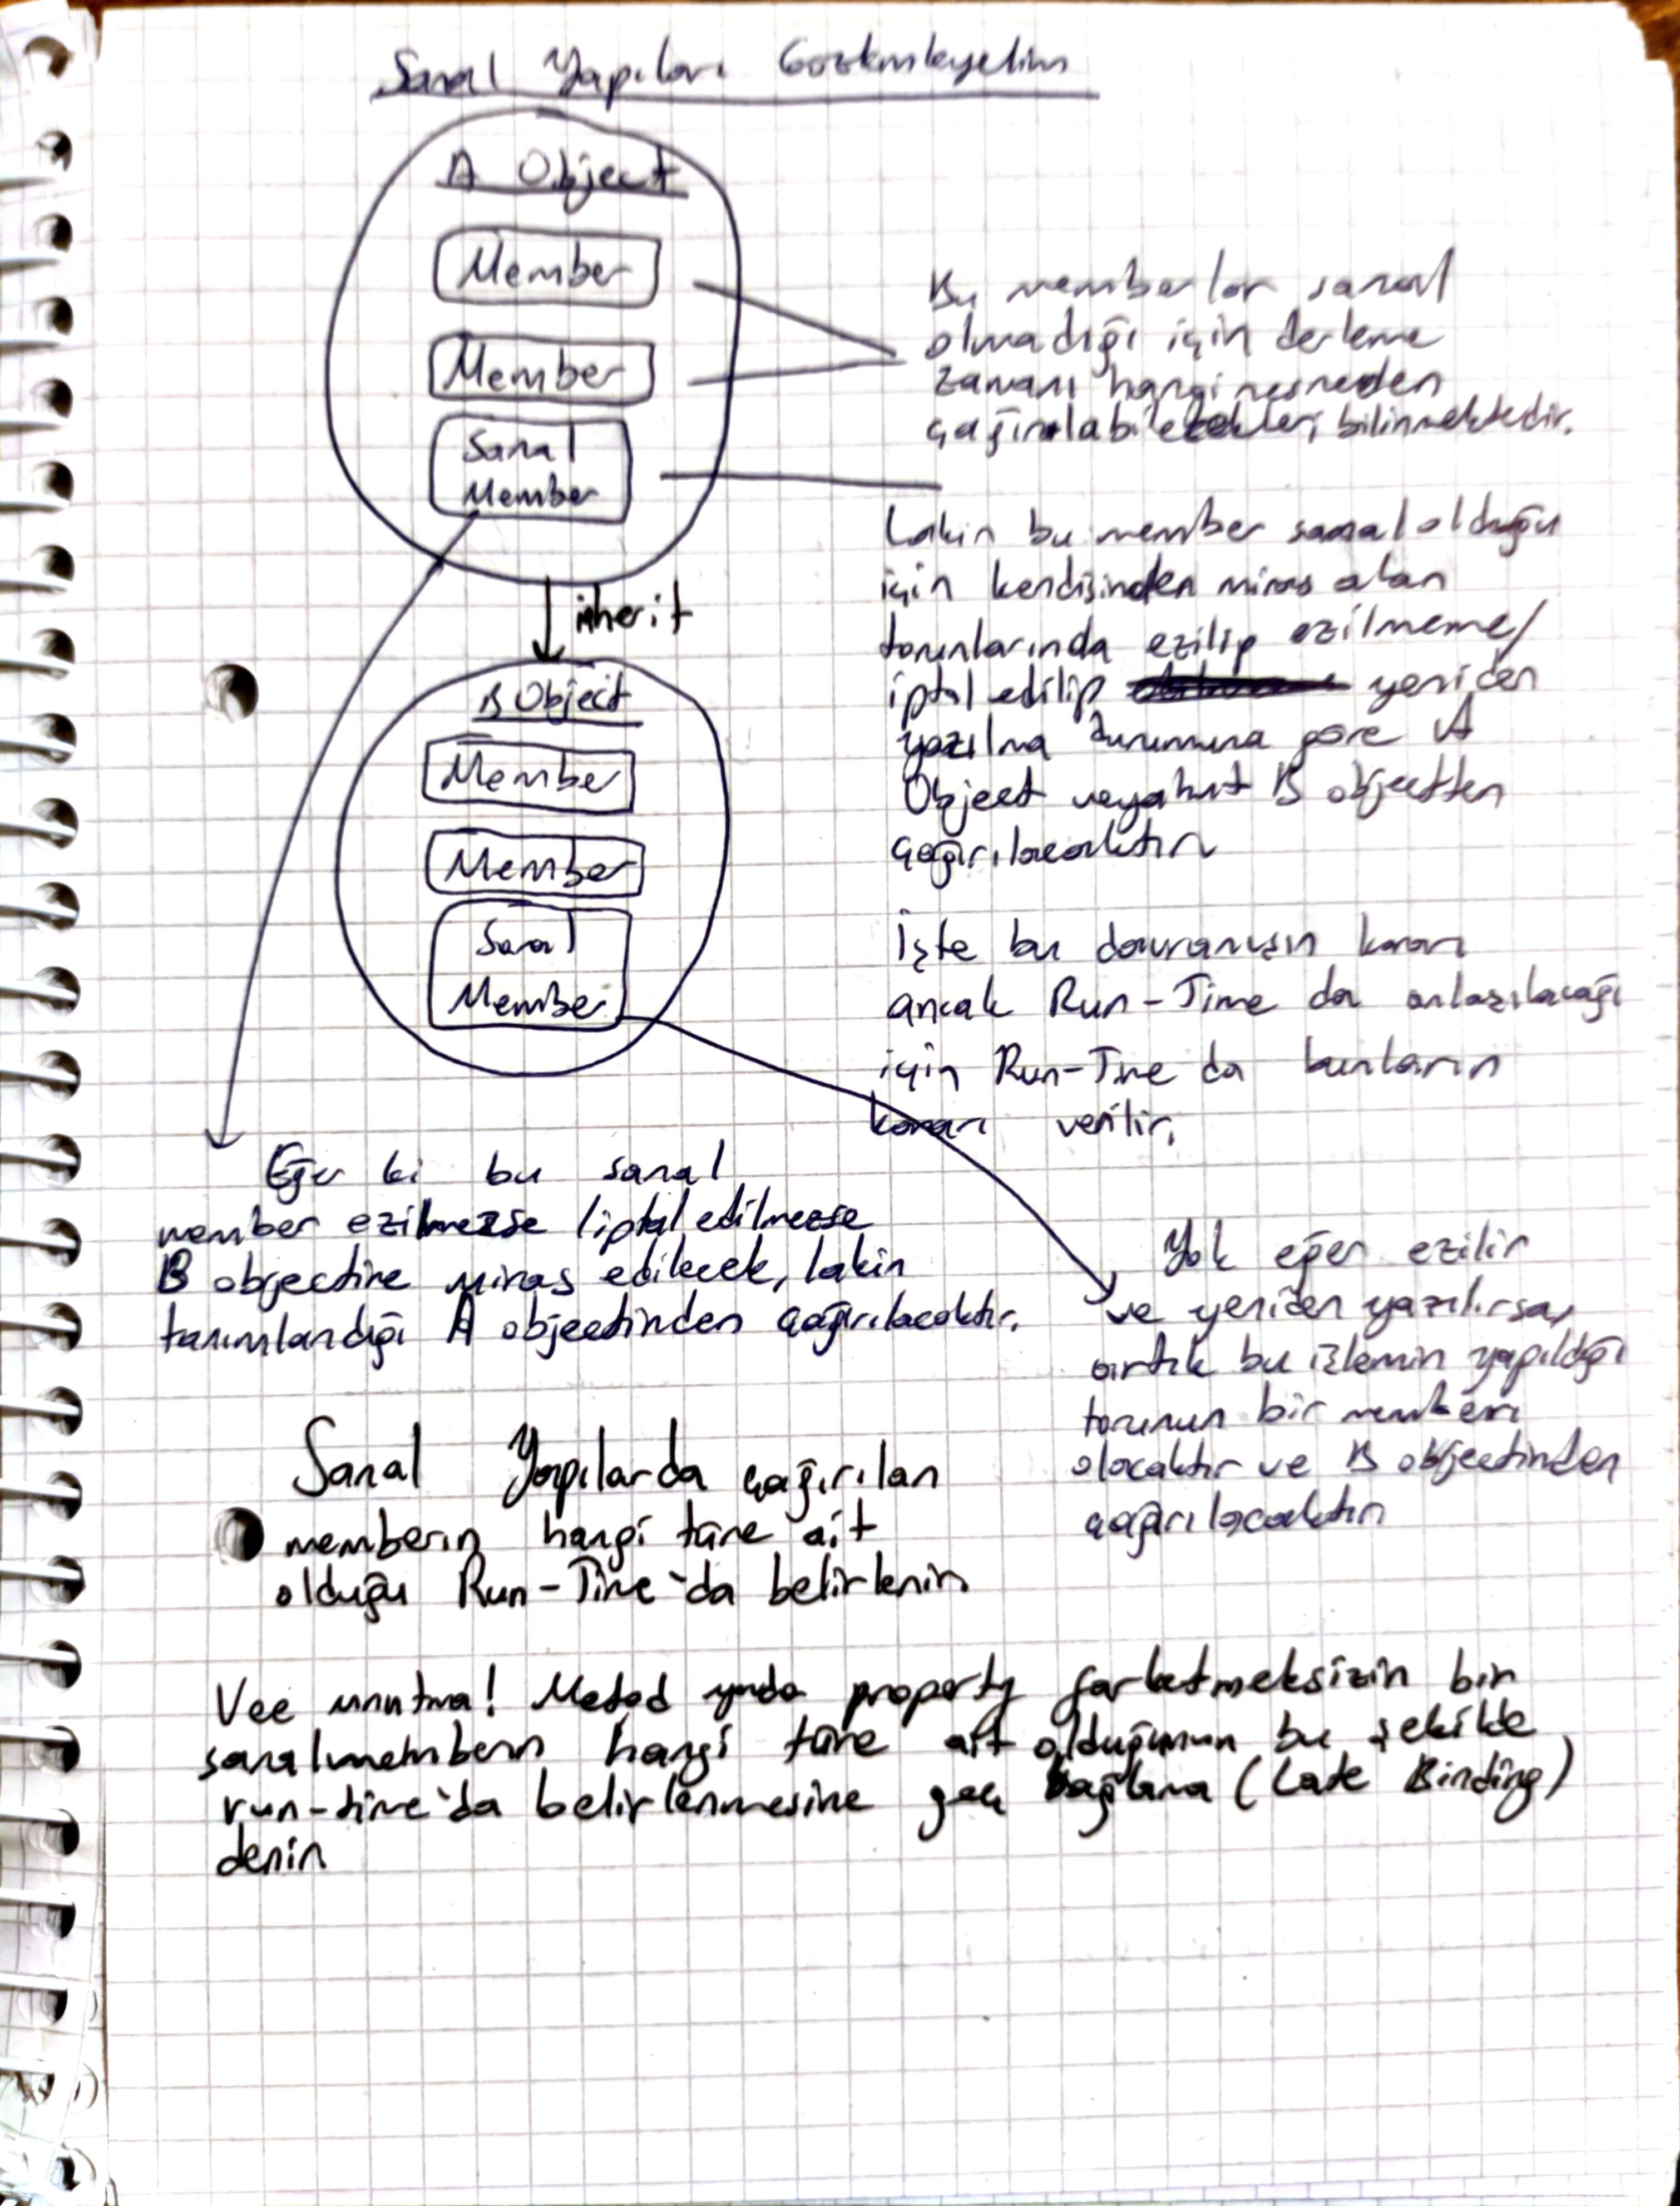 Sanal Yapıları Gözlemleyelim
A Object
Member
Member
Sanal
Member
Bu memberlar sanal
olmadığı için derleme
zamanı hangi nesneden
çağırılabilecekleri bilinmektedir.
Lakin bu member sanal olduğu
için kendisinden miras alan
torunlarında ezilip ezilmeme/
iptal edilip yeniden
yazılma durumuna göre A
Object veyahut B objectten
çağırılacaktır
İşte bu davranışın kararı
ancak Run-Time da anlaşılacağı
için Run-Time da bunların
kararı verilir.
inherit
B Object
Member
Member
Sanal
Member
Eğer ki bu sanal
member ezilmezse/iptal edilmezse
B objectine miras edilecek, lakin
tanımlandığı A objectinden çağırılacaktır.
Yok eğer ezilir
ve yeniden yazılırsa,
artık bu işlemin yapıldığı
torunun bir memberı
olacaktır ve B objectinden
çağırılacaktır
Sanal Yapılarda çağırılan
memberın hangi türe ait
olduğu Run-Time'da belirlenir.
Vee unutma! Metod yada property farketmeksizin bir
sanal memberın hangi türe ait olduğunun bu şekilde
run-time'da belirlenmesine geç bağlama (Late Binding)
denir